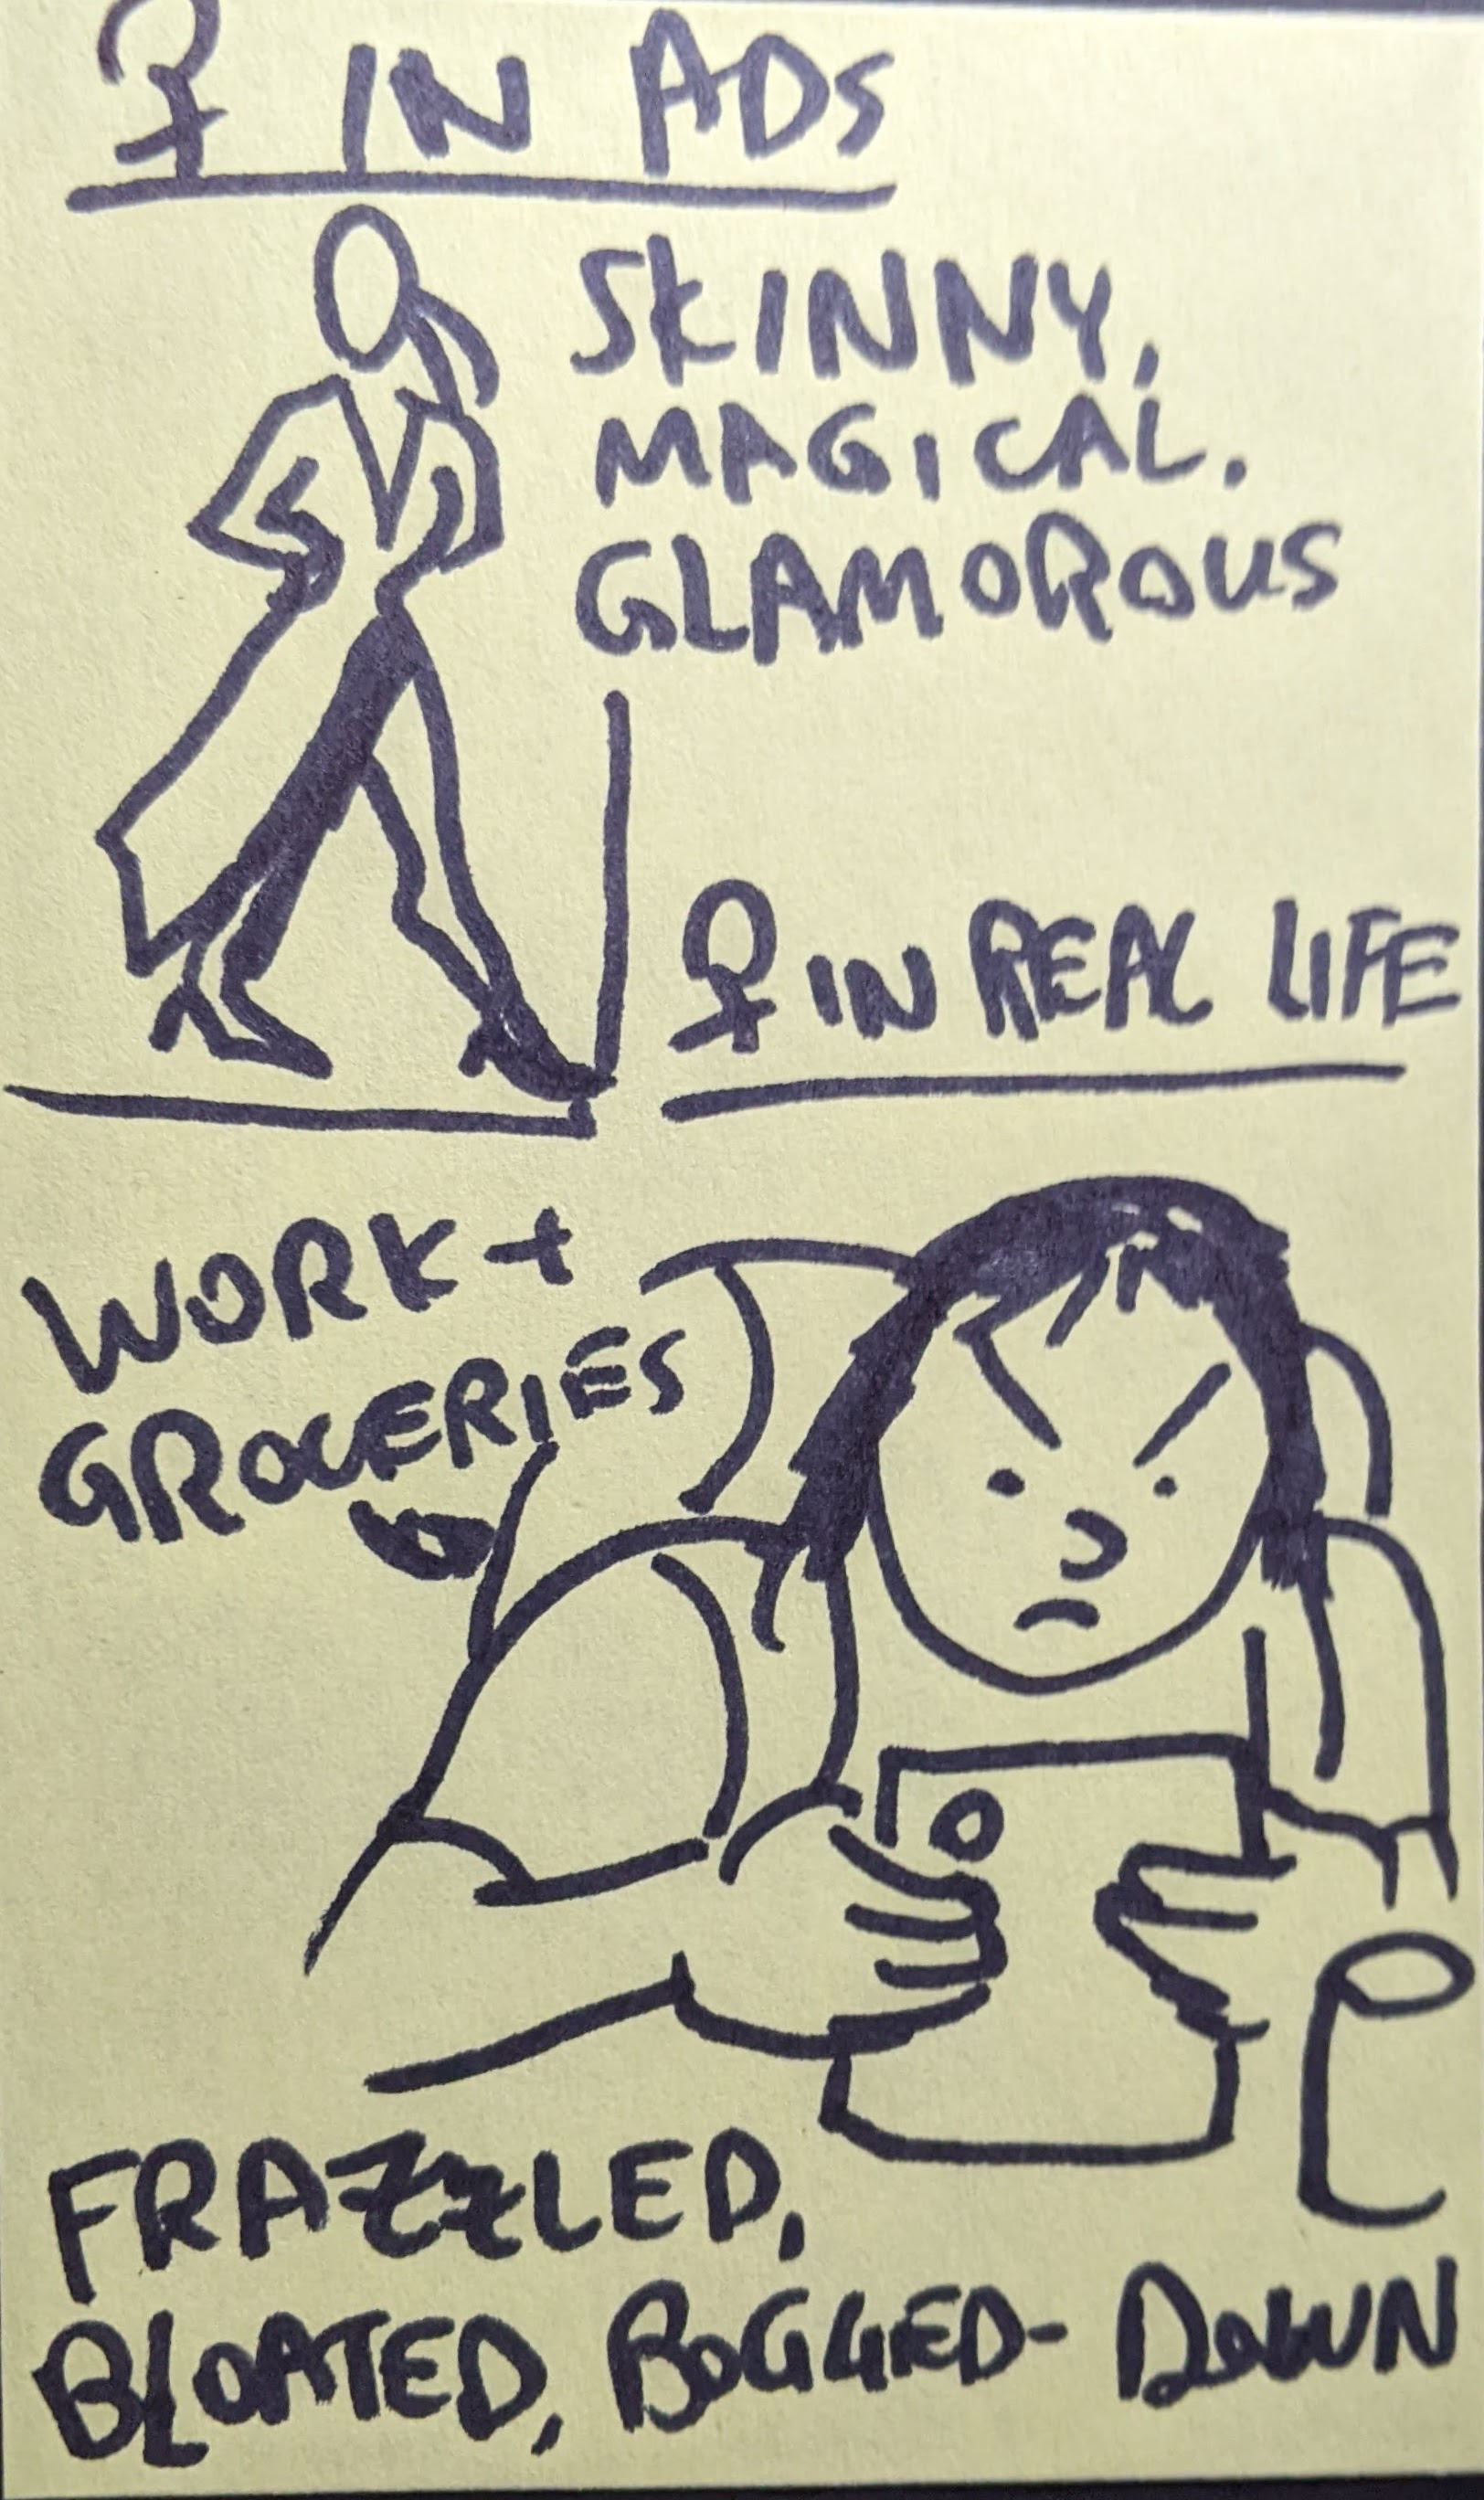 ♀ IN ADS
SKINNY,
MAGICAL.
GLAMOROUS
♀ IN REAL LIFE
WORK +
GROCERIES
FRAZZLED,
BLOATED, BOGGED-DOWN